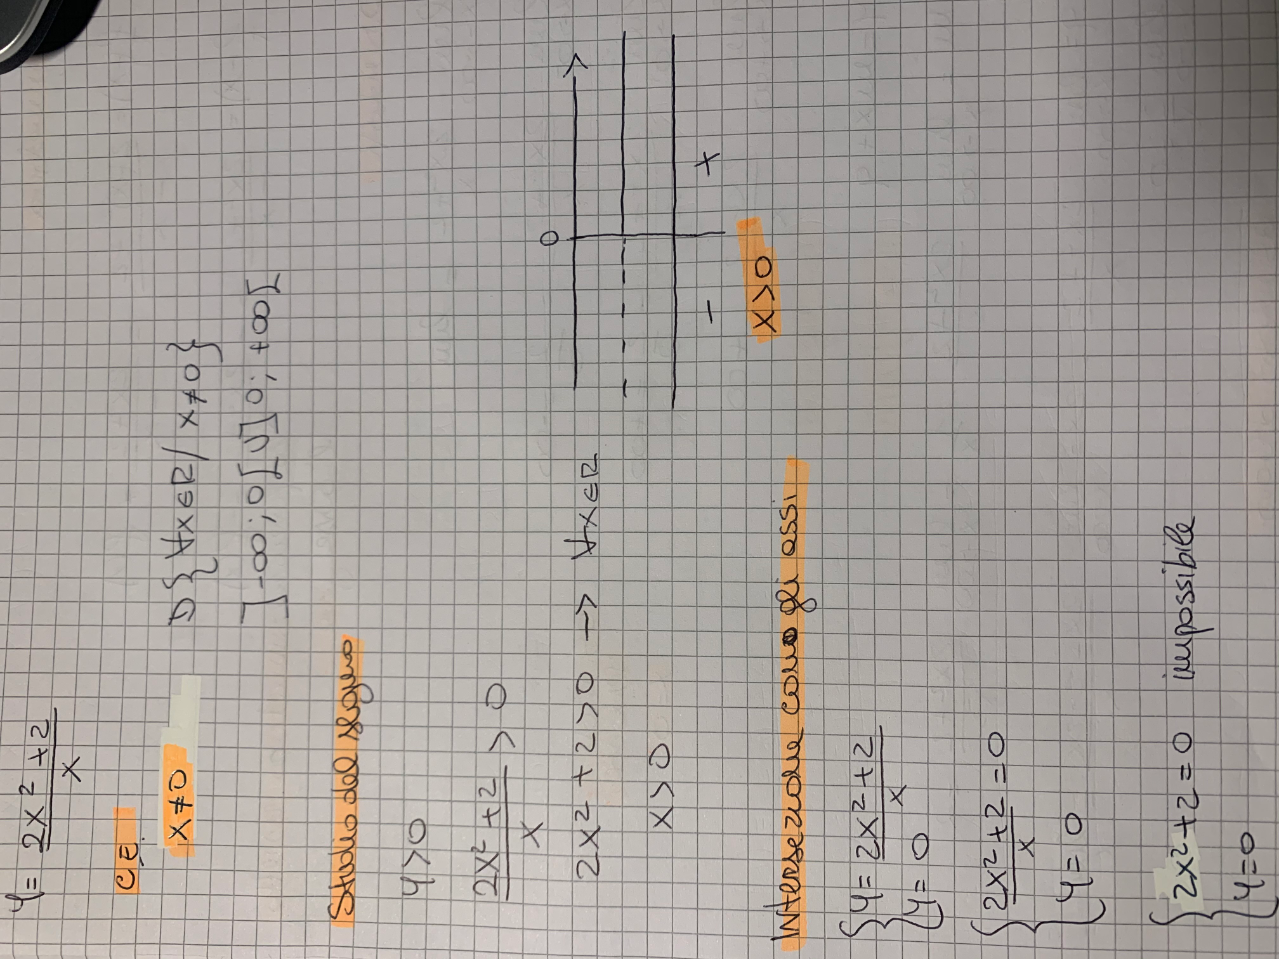 y = (2x² + 2)/x
C.E.
x ≠ 0
D { ∀x∈R / x≠0 }
]-∞; 0[ U ]0; +∞[
Studio del segno
y > 0
(2x² + 2)/x > 0
2x² + 2 > 0 → ∀x∈R
x > 0
0
- +
x > 0
Intersezione con gli assi
{ y = (2x² + 2)/x
{ y = 0
{ (2x² + 2)/x = 0
{ y = 0
{ 2x² + 2 = 0 impossibile
{ y = 0